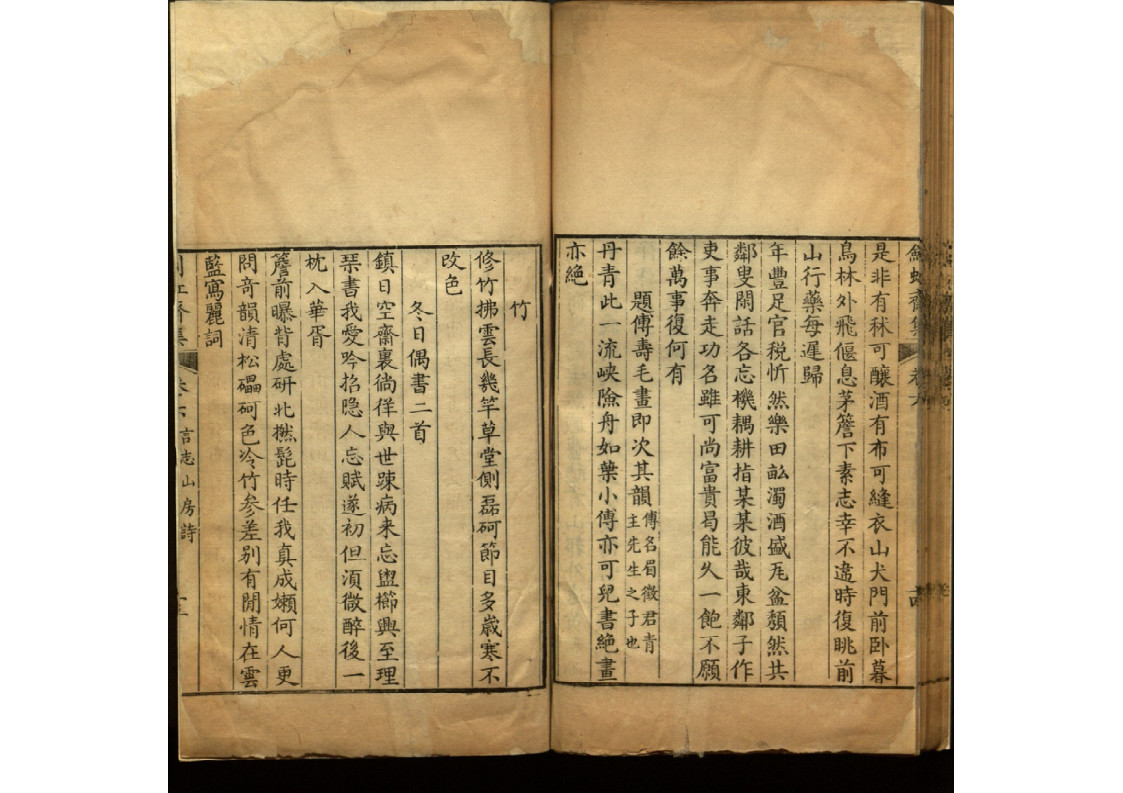 是非有林可釀酒有布可縫衣山犬門前卧暮
鳥林外飛偃息茅簷下素志幸不違時復眺前
山行藥每遲歸
年豐足官税忻然樂田畝濁酒盛瓦盆頽然共
鄰叟閑話各忘機耦耕指某某彼哉東鄰子作
吏事奔走功名雖可尚富貴曷能久一飽不願
餘萬事復何有
題傅壽毛畫即次其韻傅名眉徵君青主先生之子也
丹青此一流峽險舟如葉小傅亦可兒書絶畫
亦絶
竹
修竹拂雲長幾竿草堂側磊砢節目多歲寒不
改色
冬日偶書二首
鎮日空齋裏徜徉與世踈病来忘盥櫛興至理
琴書我愛吟招隐人忘賦遂初但湏微醉後一
枕入華胥
簷前曝背處研北撚髭時任我真成嬾何人更
問奇韻清松礧砢色冷竹參差别有閒情在雲
藍寫麗詞
卷六 言志山房詩